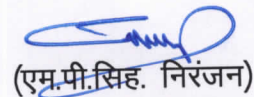 (एम.पी.सिह. निरंजन)